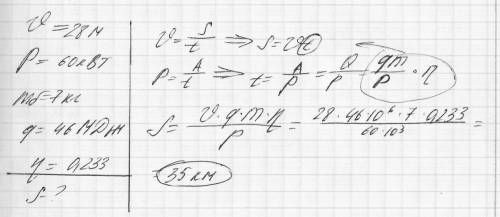 v = 28м
P = 60кВт
mб = 7 кг
q = 46 МДж
η = 0,233
S = ?
v = S/t ⇒ S = vt
P = A/t ⇒ t = A/P = Q/P = qm/P · η
S = v · q · m · η / P = 28 · 46·10⁶ · 7 · 0,233 / 60·10³ =
= 35 км